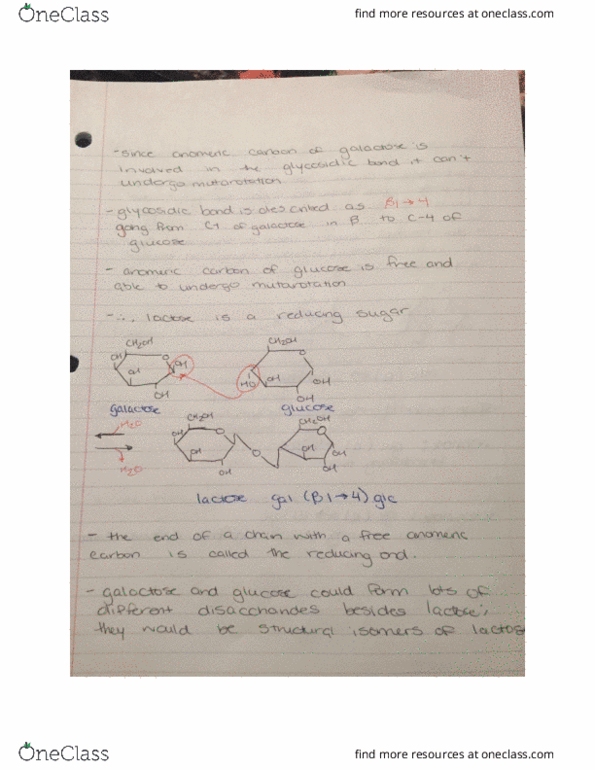 OneClass
find more resources at oneclass.com
- since anomeric carbon of galactose is
involved in the glycosidic bond it can't
undergo mutarotation
- glycosidic bond is described as β1→4
going from C1 of galactose in β to C-4 of
glucose
- anomeric carbon of glucose is free and
able to undergo mutarotation
- ∴ lactose is a reducing sugar
CH2OH CH2OH
OH O OH O
OH HO OH OH
OH OH
galactose glucose
H2O CH2OH CH2OH
OH O O
H2O OH O OH OH
OH OH
lactose gal (β1→4) glc
- the end of a chain with a free anomeric
carbon is called the reducing end.
- galactose and glucose could form lots of
different disaccharides besides lactose;
they would be structural isomers of lactose
OneClass
find more resources at oneclass.com